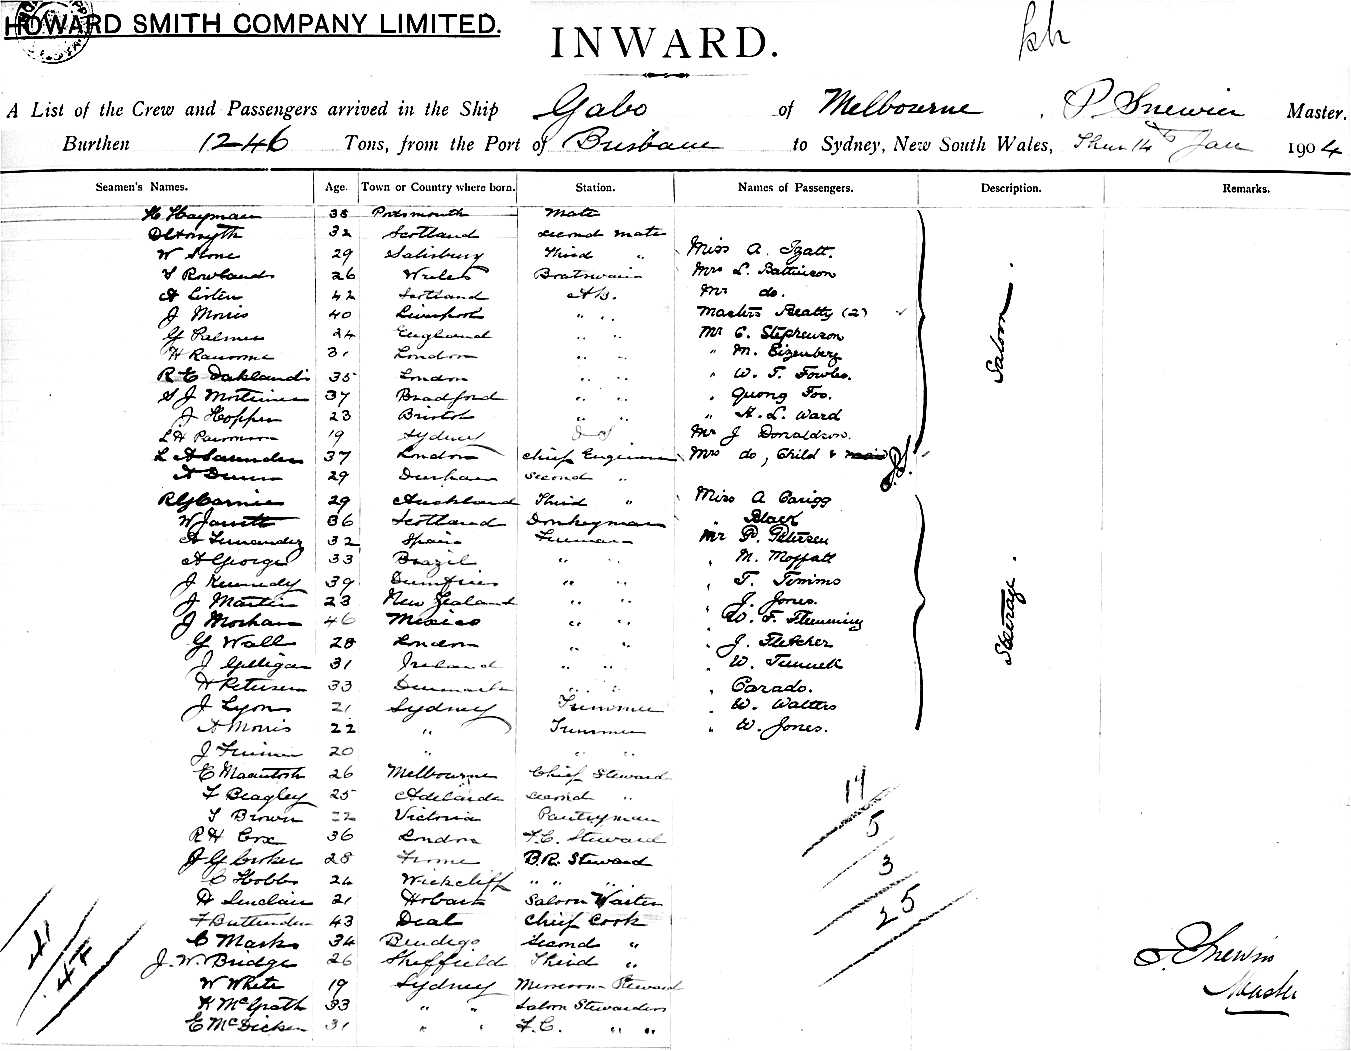 HOWARD SMITH COMPANY LIMITED.
INWARD.
A List of the Crew and Passengers arrived in the Ship Gabo of Melbourne, P. Snewin Master.
Burthen 1246 Tons, from the Port of Brisbane to Sydney, New South Wales, Thur 14th Jan 1904
Seamen's Names. Age. Town or Country where born. Station. Names of Passengers. Description. Remarks.
H Hayman 38 Portsmouth Mate
Forsyth 32 Scotland second mate
W Stone 29 Salisbury Third " Miss A. Izatt.
T Rowlands 26 Wales Boatswain Mrs L. Pattinson
A 42 Scotland A.B. Mr do.
J Morris 40 Liverpool " " Masters Beatty (2)
G Palmer 24 England " " Mr C. Stephenson
H Ransome 31 London " " " M. Eizenberg
R E Oaklands 35 London " " " W. T. Fowles.
S J Mortimer 37 Bradford " " " Quong Foo.
J Hopper 23 Bristol " " " H. L. Ward
L H 19 Sydney Mr J Donaldson.
L A Saunders 37 London Chief Engineer Mrs do, Child &
A Dunn 29 Durham Second "
Saloon.
R G Carnie 29 Auckland Third " Miss A Carigg
W Jarrett 36 Scotland Donkeyman " Black
A Fernandez 32 Spain Fireman Mr P. Petersen
A George 33 Brazil " " " M. Moffatt
J Kennedy 39 Dumfries " " " T. Timms
J Martin 23 New Zealand " " " J. Jones.
J Morhan 46 Mexico " " " W. F. Flemming
G Wall 28 London " " " J. Fletcher
J Gilligan 31 Ireland " " " W.
H Petersen 33 Denmark " " " Corado.
J Lyons 21 Sydney Trimmer " W. Watters
A Morris 22 " Trimmer " W. Jones.
Steerage.
J 20 " " "
C Macintosh 26 Melbourne Chief Steward
F Beagley 25 Adelaide second "
T Brown 22 Victoria Pantryman
R H Cox 36 London F.C. Steward
J G Croker 28 Frome B.R. Steward
C Hobbs 24 Wickcliff " " "
H Sinclair 21 Hobart Saloon Waiter
F Buttenden 43 Deal Chief Cook
C Marks 34 Bendigo Second "
J. W. Bridge 26 Sheffield Third "
W White 19 Sydney Messroom Steward
H McGrath 33 " " Saloon Stewardess
E McDicken 31 " " F.C. " "
14
5
3
25
41
P. Snewin
Master